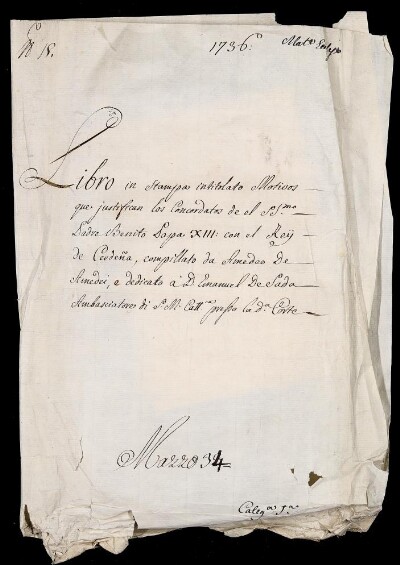 N.º 18.
1736:
Mat.ª
Libro in Stampa intitolato Motivos
que justifican los Concordatos de el SS.mo
Padre Benito Papa XIII: con el Rey
de Cerdeña, compillato da Amedeo De
Amedei, e dedicato à D. Emanuel De Sada
Ambasciatore di S. M. Catt.ca presso la d.ª Corte
Mazzo 34
Categ.ª